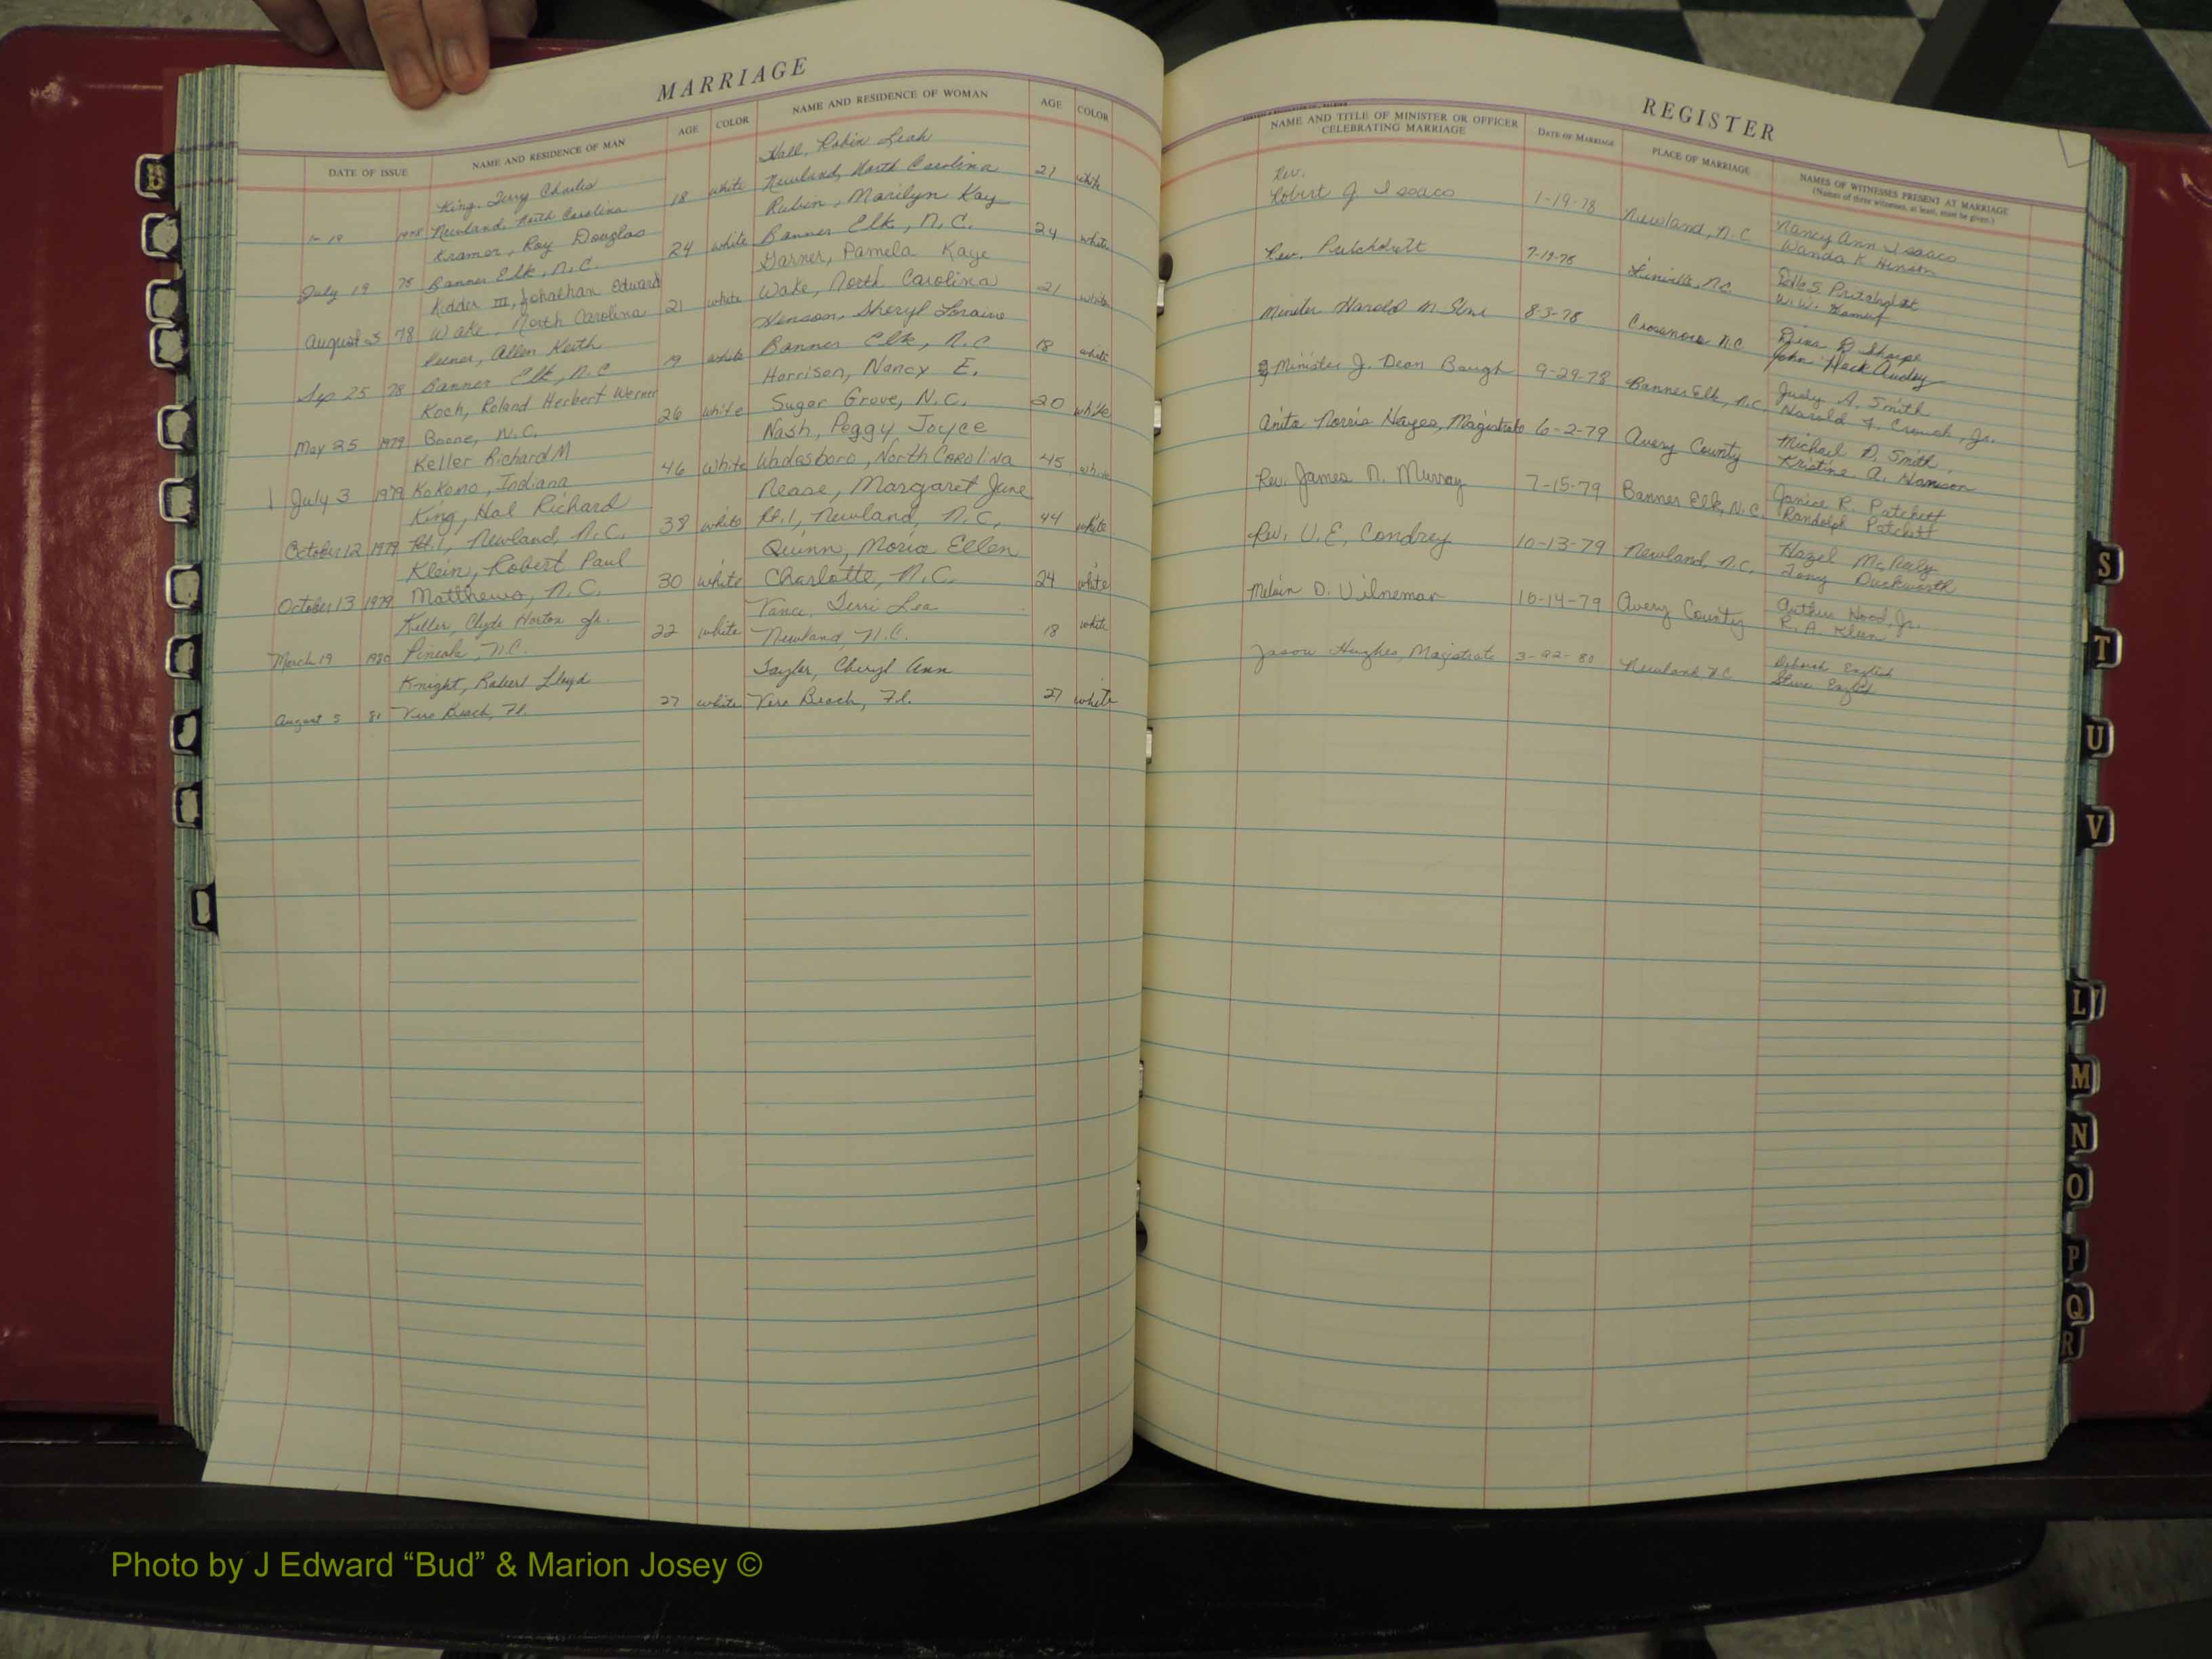 MARRIAGE
DATE OF ISSUE NAME AND RESIDENCE OF MAN AGE COLOR NAME AND RESIDENCE OF WOMAN AGE COLOR
King, Terry Charles Hall, Robin Leah
1-19 1978 Newland, North Carolina 18 white Newland, North Carolina 21 white
Kramer, Roy Douglas Rubin, Marilyn Kay
July 19 78 Banner Elk, N.C. 24 white Banner Elk, N.C. 24 white
Kidder III, Johathan Edward Garner, Pamela Kaye
August 3 78 Wake, North Carolina 21 white Wake, North Carolina 21 white
Allen Keith Henson, Sheryl Loraine
Sep 25 78 Banner Elk, N.C 19 white Banner Elk, N.C 18 white
Koch, Roland Herbert Werner Harrison, Nancy E.
May 25 1979 Boone, N.C. 26 white Sugar Grove, N.C. 20 white
Keller Richard M Nash, Peggy Joyce
July 3 1979 Kokomo, Indiana 46 white Wadesboro, North Carolina 45 white
King, Hal Richard Nease, Margaret June
October 12 1979 Rt. 1, Newland, N.C. 38 white Rt. 1, Newland, N.C. 44 white
Klein, Robert Paul Quinn, Moria Ellen
October 13 1979 Matthews, N.C. 30 white Charlotte, N.C. 24 white
Keller, Clyde Horton Jr. Vance, Terri Lea
March 19 1980 Pineola, N.C. 22 white Newland, N.C. 18 white
Knight, Robert Lloyd Taylor, Cheryl Ann
August 5 81 Vero Beach, Fl. 27 white Vero Beach, Fl. 27 white
REGISTER
NAME AND TITLE OF MINISTER OR OFFICER CELEBRATING MARRIAGE DATE OF MARRIAGE PLACE OF MARRIAGE NAMES OF WITNESSES PRESENT AT MARRIAGE
(Names of three witnesses, at least, must be given.)
Rev.
Robert J. Isaacs 1-19-78 Newland, N.C Nancy Ann Isaacs
Wanda K Hinson
Rev. 7-19-78 Linville, N.C.
W.W.
Harold M. 8-3-78 Crossnore N.C Dina D Sharpe
John
Minister J. Dean Baugh 9-29-78 Banner Elk, N.C. Judy A. Smith
Harold F. Crouch, Jr.
Anita Norris Hayes, Magistrate 6-2-79 Avery County Michael D. Smith
Kristine A. Hanson
Rev. James N. Murray 7-15-79 Banner Elk, N.C. Janice R. Patchett
Randolph Patchett
Rev. U.E. Condrey 10-13-79 Newland, N.C. Hazel McNeely
Tony Duckworth
Melvin D. 10-14-79 Avery County Arthur Hood, Jr.
R. A. Klein
Jason Hughes, Magistrate 3-22-80 Newland N.C Deborah English
Steve English
B
S
T
U
V
L
M
N
O
P
Q
R
Photo by J Edward “Bud” & Marion Josey ©